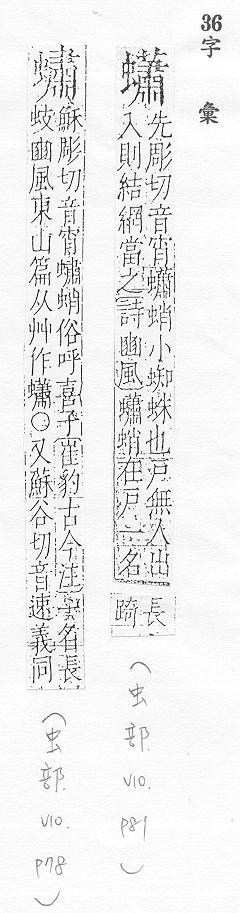 36
字彙
蠨
先彫切音宵蠨蛸小蜘蛛也戸無人出
入則結網當之詩豳風蠨蛸在戸一名
長
踦
(虫部. V10. P81)
蟰
蘇彫切音宵蟰蛸俗呼喜子崔豹古今注一名長
蚑豳風東山篇从艸作蠨○又蘇谷切音速義同
(虫部. V10. P78)